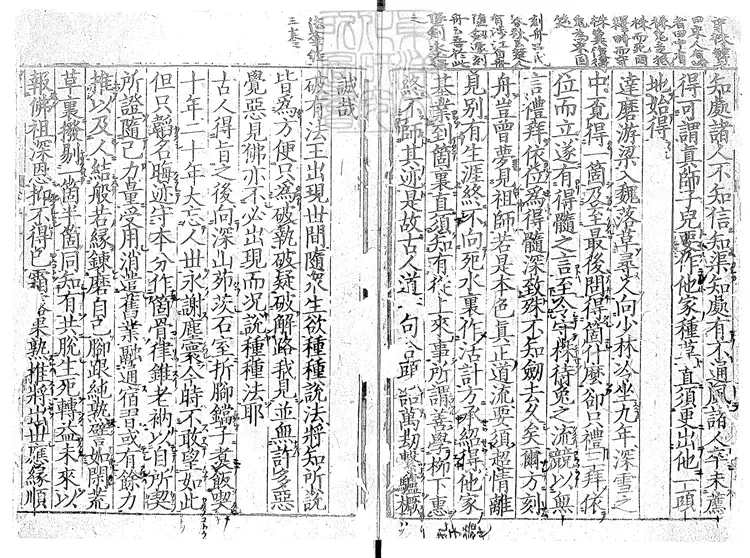 知處諸人不知信知渠知處有不通風諸人卒未薦
得可謂真師子兒要作他家種草直須更出他一頭
地始得
達磨游梁入魏落草尋人向少林冷坐九年深雪之
中覓得一箇乃至最後問得箇什麼卻只禮三拜依
位而立遂有得髓之言至今守株待兔之流競以無
言禮拜依位為得髓深致殊不知劍去久矣爾方刻
舟豈曾夢見祖師若是本色真正道流要須超情離
見別有生涯終不向死水裏作活計方承紹得他家
基業到箇裏直須知有從上來事所謂善學柳下惠
終不師其迹是故古人道一句合頭語萬劫繫驢橛
誠哉
破有法王出現世間隨衆生欲種種說法將知所說
皆為方便只為破執破疑破解路我見並無許多惡
覺惡見佛亦不必出現而況說種種法耶
古人得旨之後向深山茆茨石室折腳鐺子煑飯喫
十年二十年大忘人世永謝塵寰今時不敢望如此
但只韜名晦迹守本分作箇骨律錐老衲以自所契
所證隨己力量受用消遣舊業融通宿習或有餘力
推以及人結般若緣鍊磨自己腳跟純熟譬如閑荒
草裏撥剔一箇半箇同知有共脫生死轉益未來以
報佛祖深恩抑不得已霜露果熟推將出世應緣順